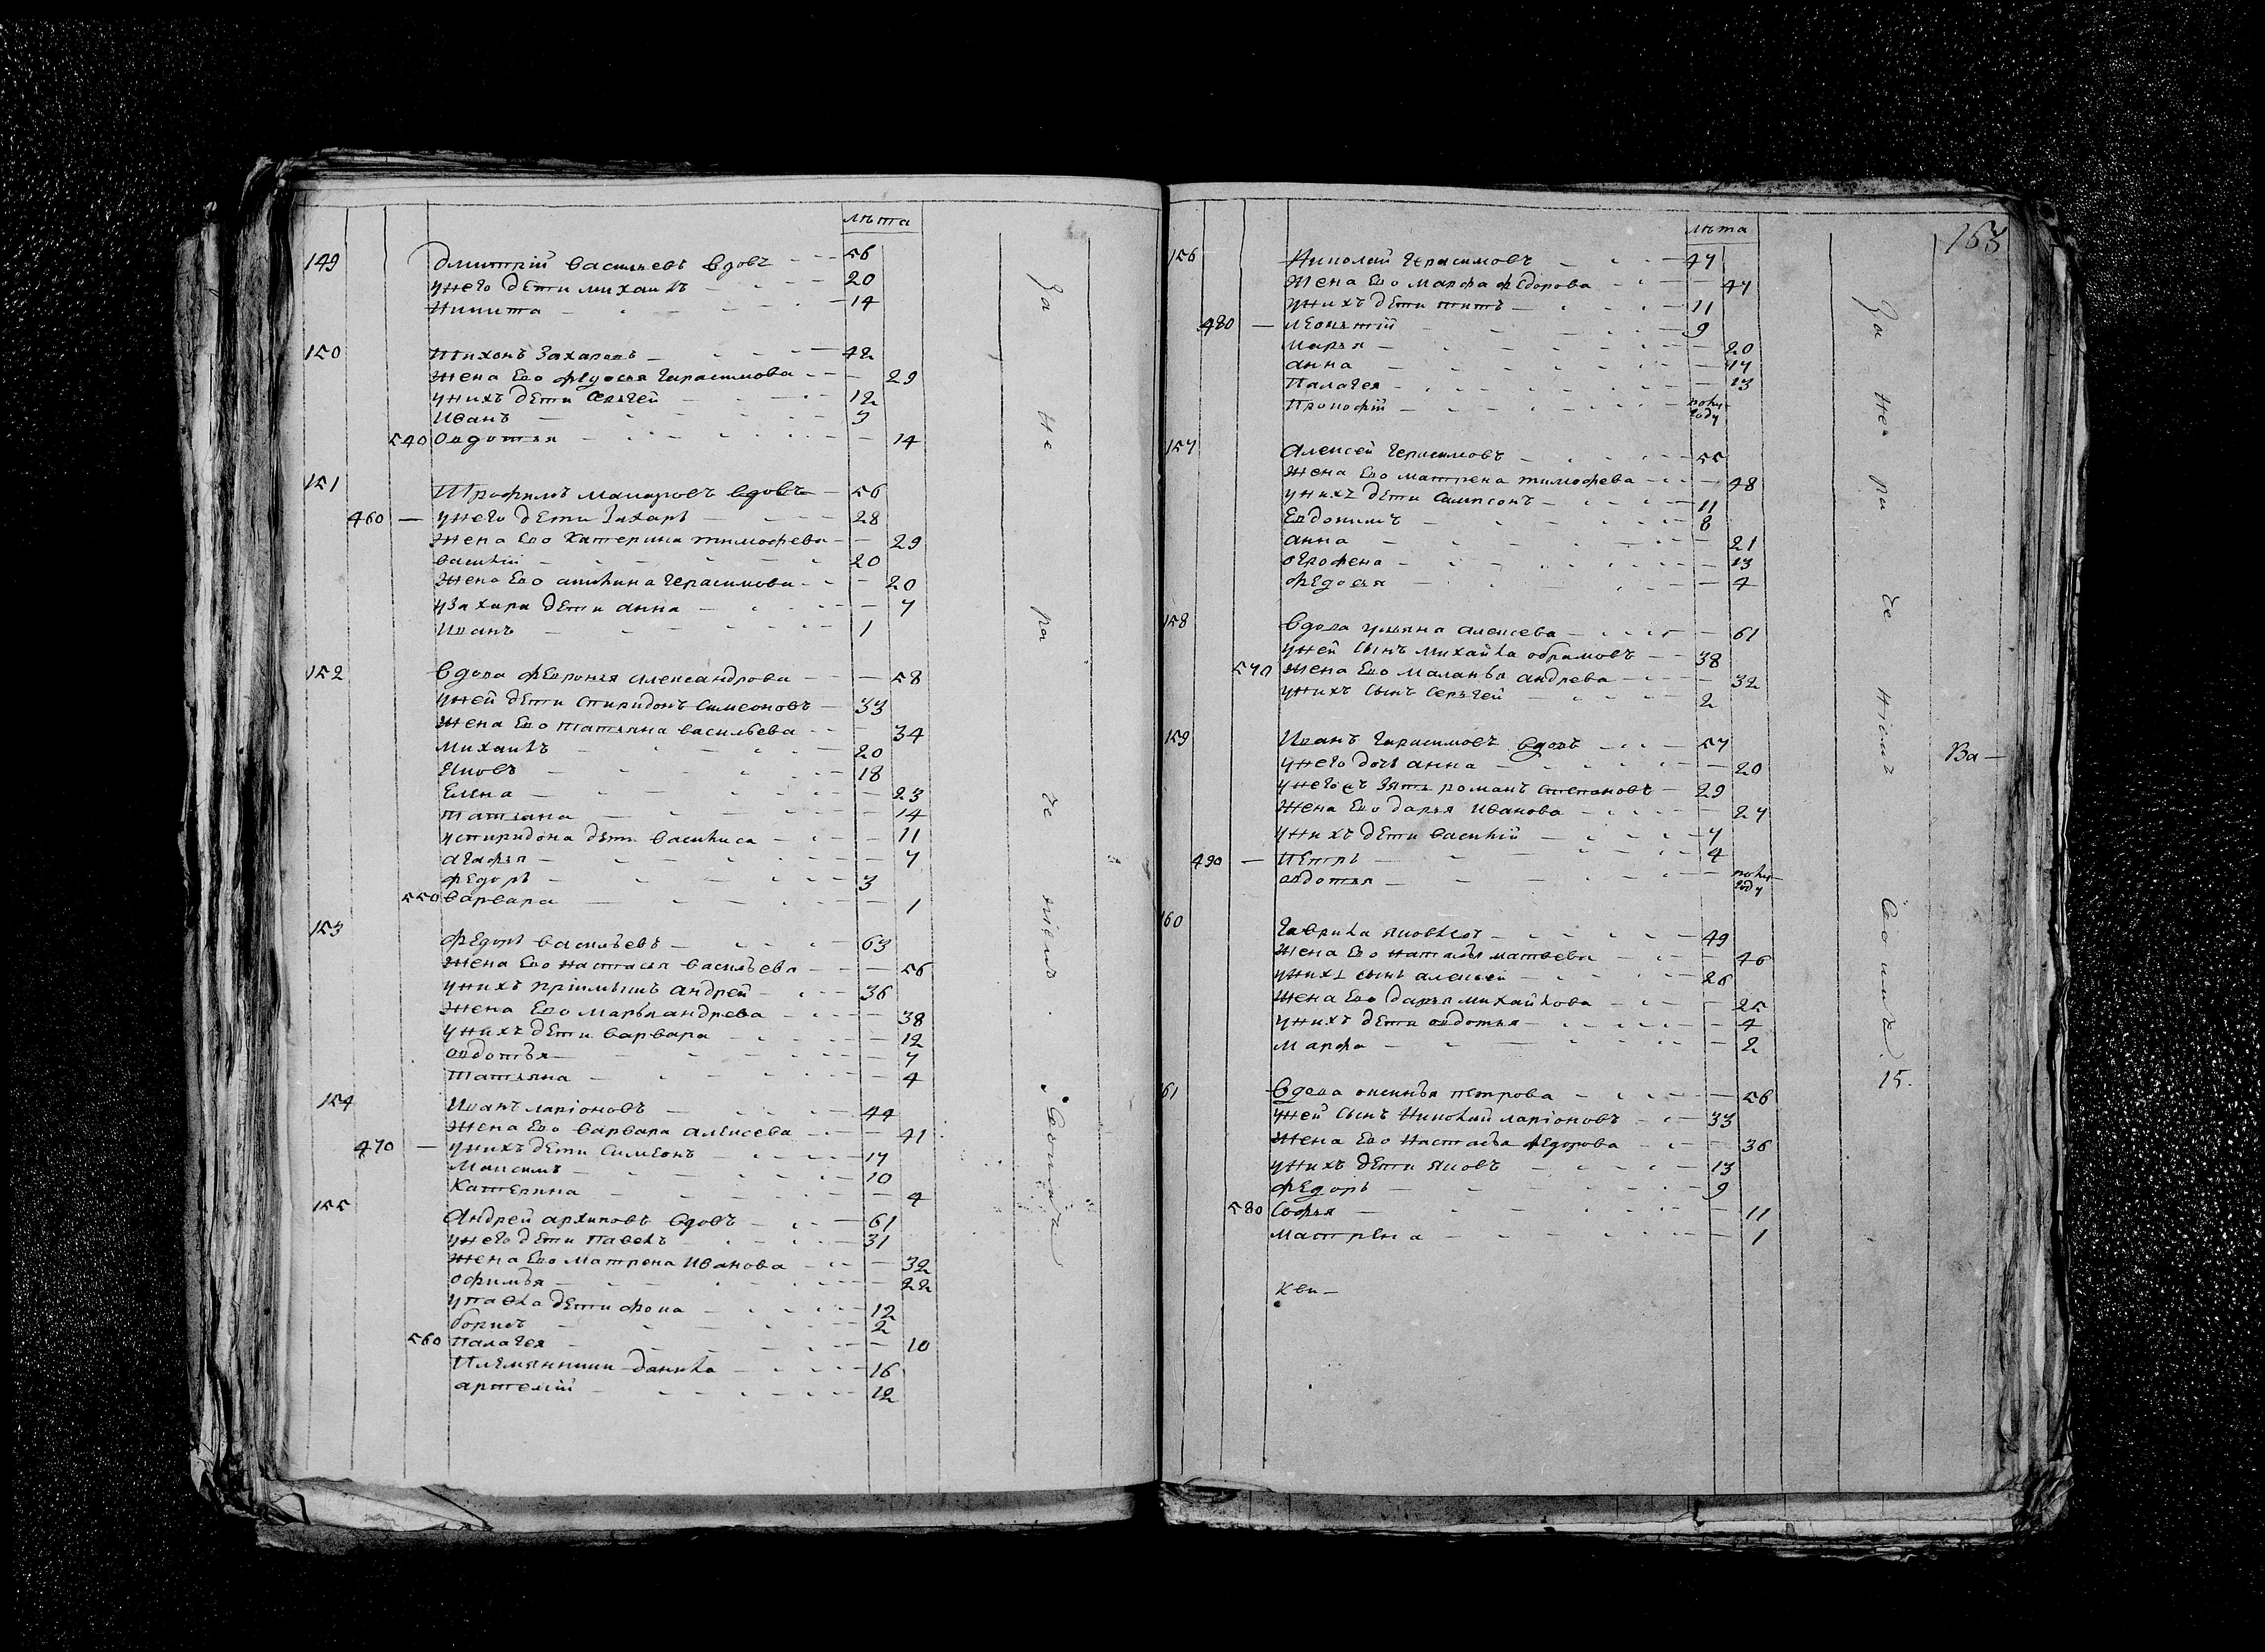 лѣта
149 Дмитрій васильевъ вдовъ 56
унего дети михаилъ 20
Никита 14
150 Тихонъ Захаровъ 42
жена Его Федосья Гарасимова 29
унихъ дети Сергей 12
Иванъ 9
540 Овдотья 14
151 Трофимъ Макаровъ вдовъ 56
460 унего дети Захаръ 28
Жена Ево Катерина тимофева 29
василій 20
Жена Ево акилина Герасимова 20
узахара дети анна 7
Иванъ 1
152 Вдова Февронья александрова 58
уней дети Спиридонъ Симеоновъ 33
Жена Ево татьяна васильева 34
Михаилъ 20
Яковъ 18
Елена 23
татьяна 14
успиридона дети василиса 11
агафья 7
Федоръ 3
550 варвара 1
153 Федоръ васильевъ 63
Жена Ево настасья васильева 56
унихъ пріимышъ андрей 36
Жена Ево Марья андрева 38
унихъ дети варвара 12
овдотья 7
татьяна 4
154 Иванъ ларіоновъ 44
Жена Ево варвара алексева 41
470 унихъ дети Симеонъ 17
Максимъ 10
Катерина 4
155 Андрей архиповъ вдовъ 61
унего дети павелъ 31
Жена Ево матрена Иванова 32
офимья 22
упавла дети фока 12
борисъ 2
560 палагея 10
Племянники данила 16
артемій 12
За не ра че ніемъ. Своимъ
163
лѣта
156 Николай Герасимовъ 47
Жена Ево марфа федорова 47
унихъ дети титъ 11
480 леонтій 9
марья 20
анна 17
Палагея 13
Прокофій полу году
157 Алексей Герасимовъ 55
Жена Ево матрена тимофева 48
унихъ дети Сампсонъ 11
Евдокимъ 8
анна 21
огрофена 13
федосья 4
158 Вдова ульяна алексева 61
уней сынъ михайла обрамовъ 38
570 Жена Ево маланья андрева 32
унихъ сынъ Сергей 2
159 Иванъ Гарасимовъ вдовъ 57
унего дочь анна 20
унегоеъ зять романъ степановъ 29
Жена Ево дарья Иванова 27
унихъ дети василій 7
490 Петръ 4
овдотья полу году
160 Гаврила яковлевъ 49
Жена Ево наталья матвева 46
унихъ сынъ алексей 26
Жена Ево дарья михайлова 25
унихъ дети овдотья 4
Марфа 2
161 Вдова оксинья петрова 56
уней сынъ николай ларіоновъ 33
Жена Ево настасья федорова 36
унихъ дети яковъ 13
Федоръ 9
580 Софья 11
Мастрена 1
За не ра че ніемъ Своимъ. 15.
Ва-
кви-